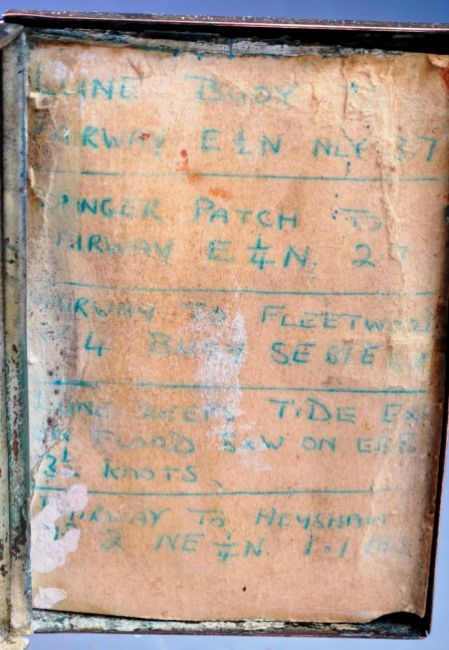 LUNE BUOY
FAIRWAY E ½ N NLY 3.7
DANGER PATCH TO
FAIRWAY E ¼ N. 2.7
FAIRWAY TO FLEETWOOD
4 BUOY SE
LUNE DEEPS TIDE
FLOOD S&W ON EBB
3½ KNOTS,
FAIRWAY TO HEYSHAM
2 NE ¼ N. 1.1